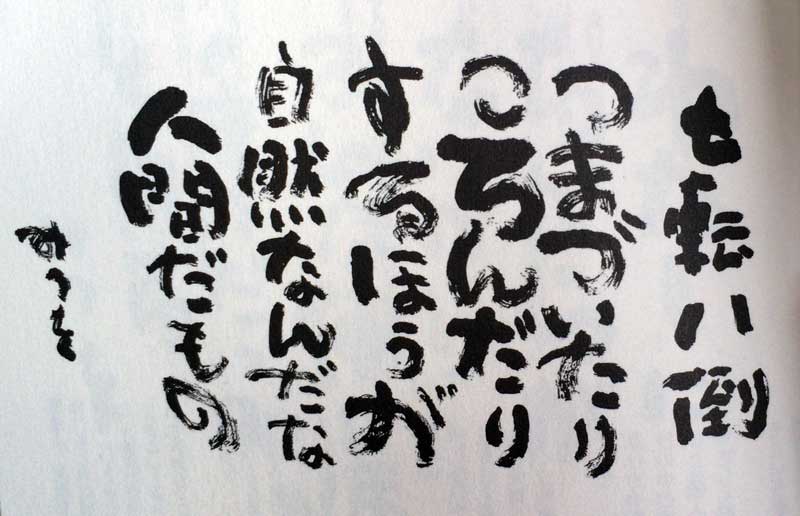 七転八倒
つまづいたり
ころんだり
するほうが
自然なんだな
人間だもの
みつを